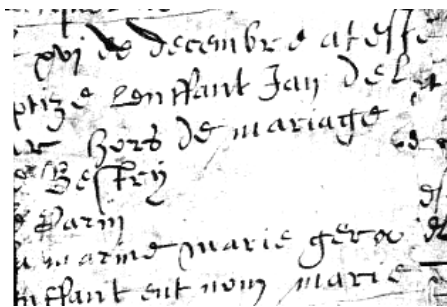 xvj de decembre at esté
ptize Lenffant Jan Del
hors de mariage
Bestry
Parin
marine marie gero
nffant eut nom marie